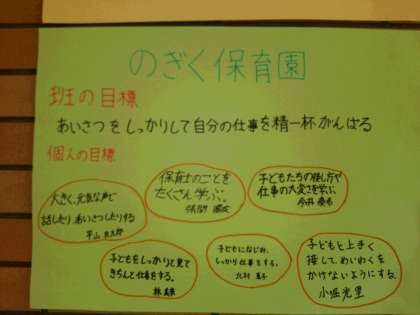 のぎく保育園
班の目標
あいさつをしっかりして自分の仕事を精一杯がんばる
個人の目標
大きく、元気な声で
話したり、あいさつしたりする
保育士のことを
たくさん学ぶ。
子どもたちの接し方や
仕事の大変さを学ぶ
今井
子どもをしっかりと見て
きちんと仕事をする。
子どもになじみ、
しっかり仕事をする。
北村
子どもと上手く
接して めいわくを
かけないようにする。
小堀 光里